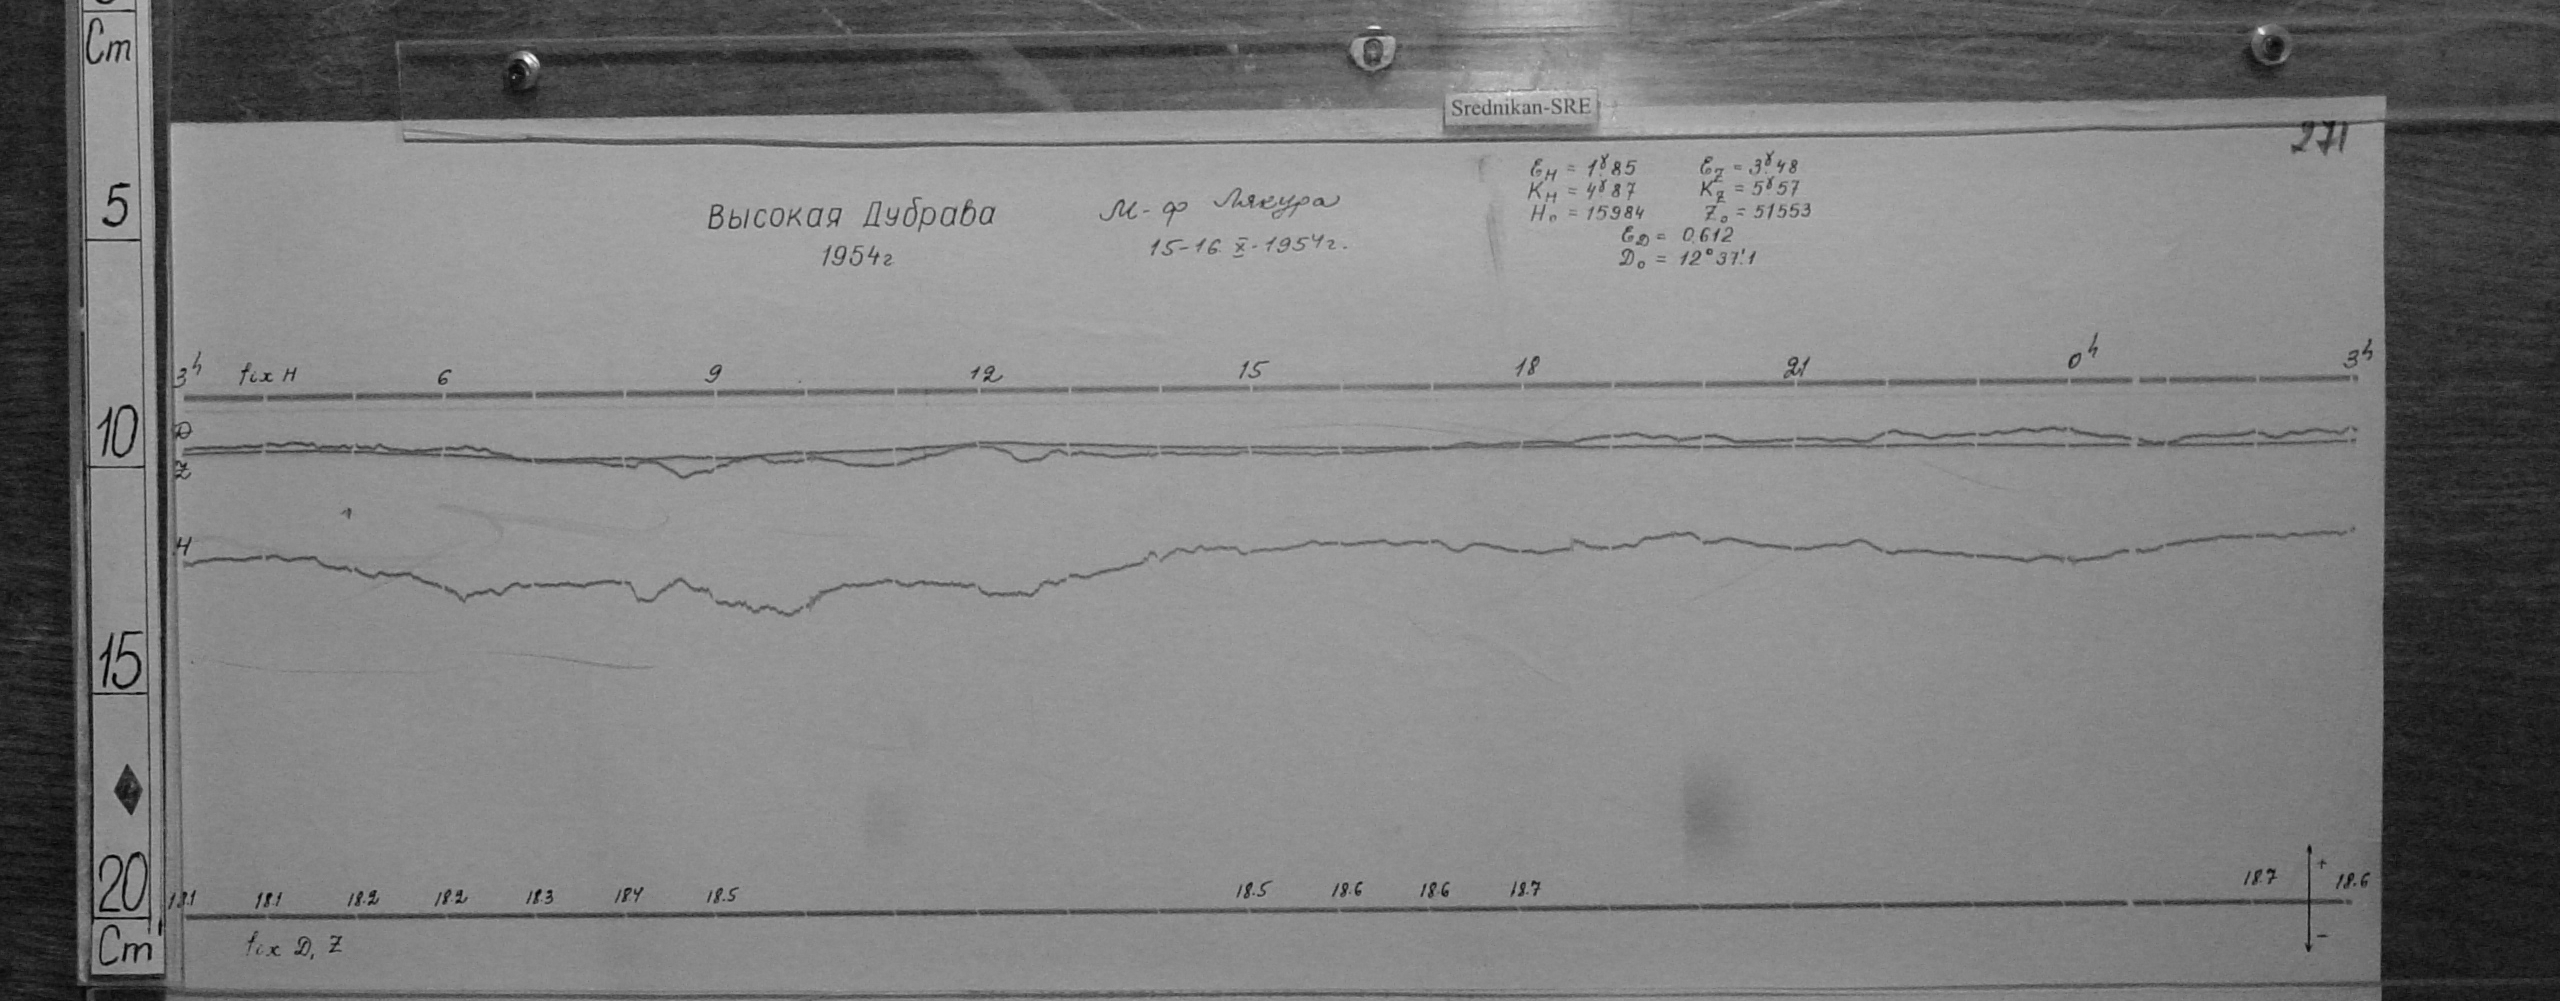 Cm
5
10
15
20
Cm
Srednikan-SRE
271
Высокая Дубрава
1954г
М-ф Лякура
15-16 X-1954г.
EH = 1γ85 EZ = 3γ48
KH = 4γ87 KZ = 5γ57
H₀ = 15984 Z₀ = 51553
ED = 0.612
D₀ = 12°37'.1
3h fix H 6 9 12 15 18 21 0h 3h
D
Z
H
18.1 18.1 18.2 18.2 18.3 18.4 18.5 18.5 18.6 18.6 18.7 18.7 18.6
+
-
fix D, Z